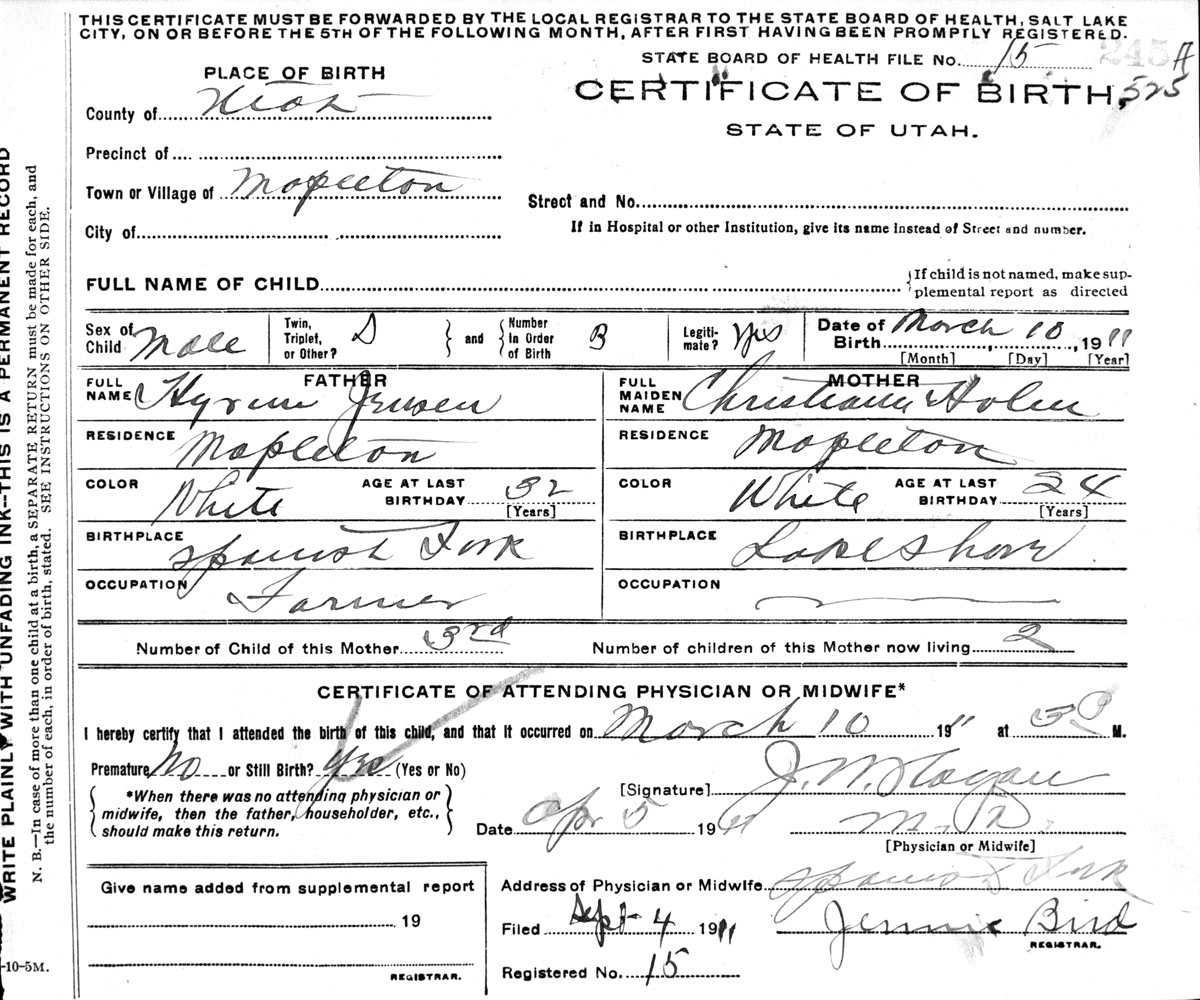 THIS CERTIFICATE MUST BE FORWARDED BY THE LOCAL REGISTRAR TO THE STATE BOARD OF HEALTH, SALT LAKE
CITY, ON OR BEFORE THE 5TH OF THE FOLLOWING MONTH, AFTER FIRST HAVING BEEN PROMPTLY REGISTERED.
STATE BOARD OF HEALTH FILE No. 15 245 A
525
PLACE OF BIRTH
CERTIFICATE OF BIRTH,
STATE OF UTAH.
County of Utah
Precinct of
Town or Village of Mapleton
Street and No.
City of
If in Hospital or other Institution, give its name instead of Street and number.
FULL NAME OF CHILD {If child is not named, make sup-
plemental report as directed
Sex of Child Male Twin, Triplet, or Other? S } and { Number In Order of Birth B Legiti-mate? Yes Date of Birth March 10, 1911
[Month] [Day] [Year]
FATHER MOTHER
FULL NAME Hyrum Jensen FULL MAIDEN NAME Holm
RESIDENCE Mapleton RESIDENCE Mapleton
COLOR White AGE AT LAST BIRTHDAY 32 [Years] COLOR White AGE AT LAST BIRTHDAY 24 [Years]
BIRTHPLACE Spanish Fork BIRTHPLACE Lake Shore
OCCUPATION Farmer OCCUPATION
Number of Child of this Mother 3rd Number of children of this Mother now living 2
CERTIFICATE OF ATTENDING PHYSICIAN OR MIDWIFE*
I hereby certify that I attended the birth of this child, and that it occurred on March 10 1911 at M.
Premature No or Still Birth? Yes (Yes or No)
[Signature] J. W. Hagan
*When there was no attending physician or
midwife, then the father, householder, etc.,
should make this return.
Date Apr 5 1911 M. D.
[Physician or Midwife]
Give name added from supplemental report
19
REGISTRAR.
Address of Physician or Midwife Spanish Fork
Filed Sept 4 1911 Jennie Bird
REGISTRAR.
Registered No. 15
-10-5M.
WRITE PLAINLY WITH UNFADING INK—THIS IS A PERMANENT RECORD
N. B.—In case of more than one child at a birth, a SEPARATE RETURN must be made for each, and
the number of each, in order of birth, stated. SEE INSTRUCTIONS ON OTHER SIDE.